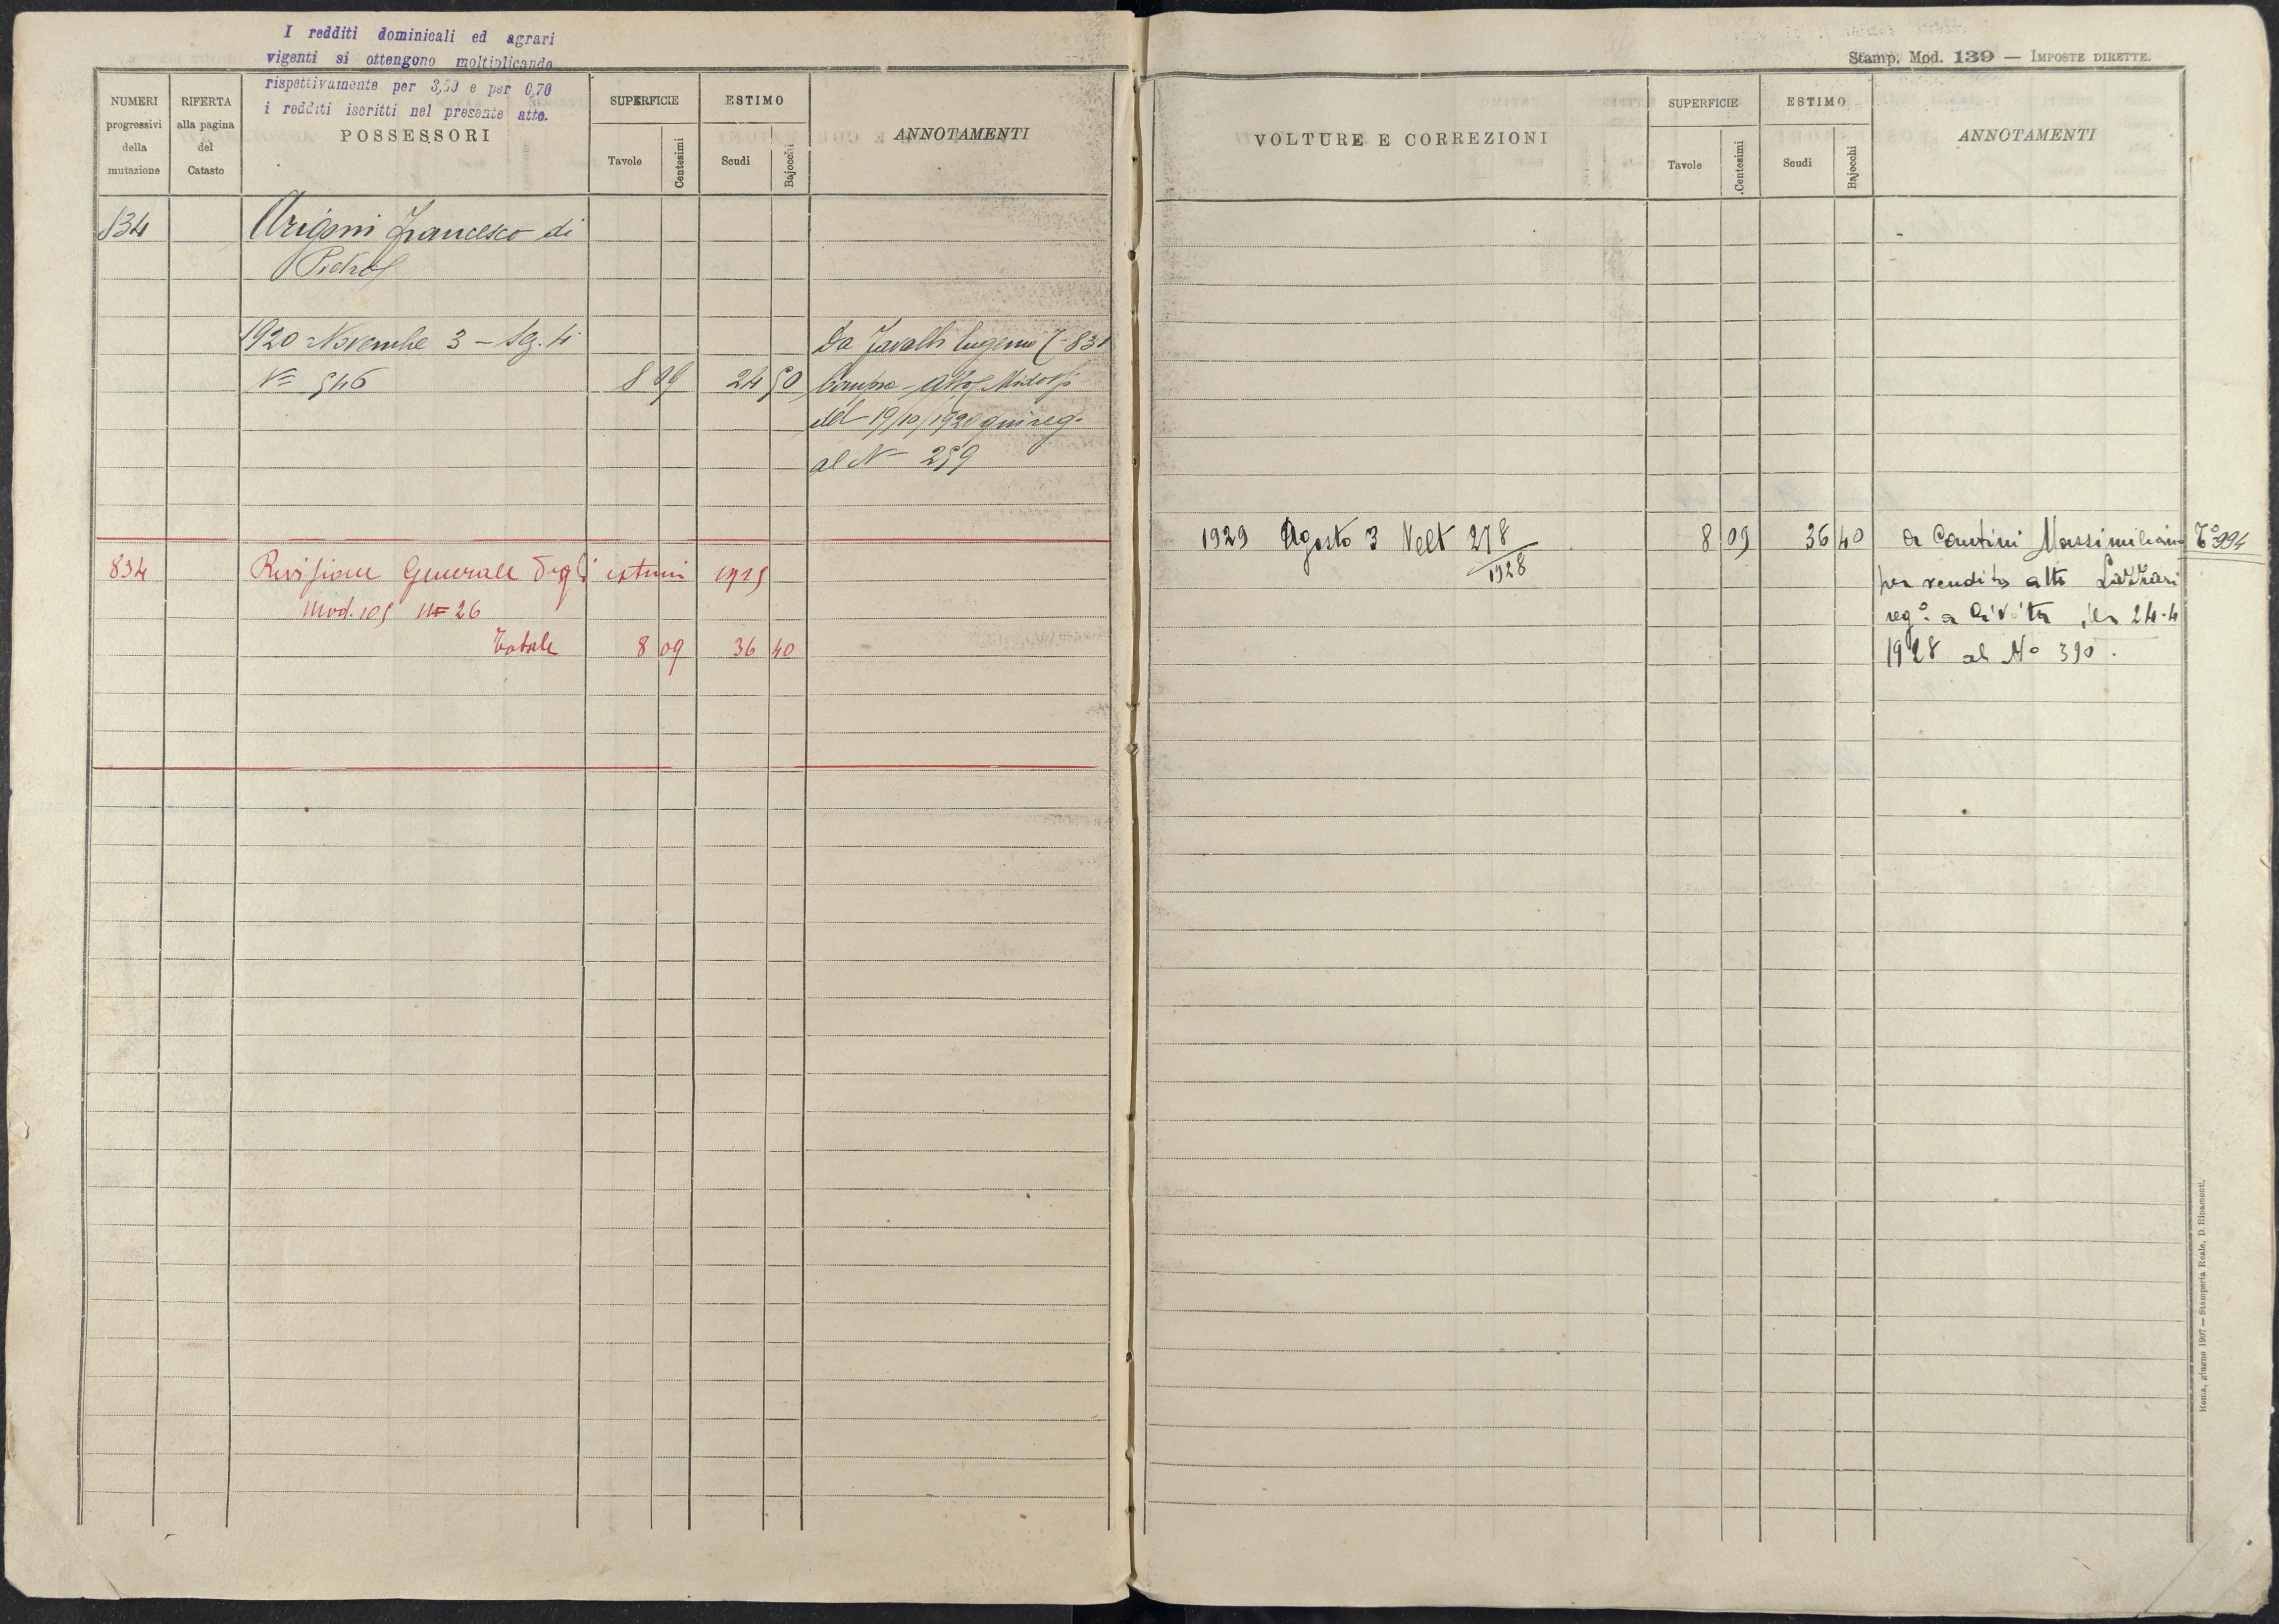 I redditi dominicali ed agrari
vigenti si ottengono moltiplicando
rispettivamente per 3,50 e per 0,70
i redditi iscritti nel presente atto.
NUMERI
progressivi
della
mutazione
RIFERTA
alla pagina
del
Catasto
POSSESSORI
SUPERFICIE
Tavole
Centesimi
ESTIMO
Scudi
Bajocchi
ANNOTAMENTI
834
Arigoni Francesco di
Pietro
1920 Novembre 3 -
N= 546
8 09
24 50
Da Favalli Eugenio 831
Compra - Atto
del 19/10/1920 qui reg.
al N- 259
834
Revisione Generale degli estimi 1925
Mod. 105 N= 26
Totale
8 09
36 40
Stamp. Mod. 139 — IMPOSTE DIRETTE.
VOLTURE E CORREZIONI
SUPERFICIE
Tavole
Centesimi
ESTIMO
Scudi
Bajocchi
ANNOTAMENTI
1929 Agosto 3 Volt 278
1928
8 09
36 40
a Cantini Massimiliano To 994
per vendita atto Lazzari
rego a Civita 24-4
1928 al No 390.
Roma, giugno 1907 — Stamperia Reale, D. Ripamonti.